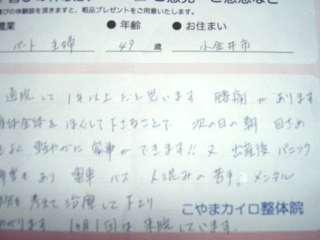 粗品プレゼントをご用意しています。
職業 ●年齢 ●お住まい
パート主婦 49歳 小金井市
通院して1年以上だと思います 腰痛があります
身体全体をほぐして下さることで 次の日の朝 目ざめ
よく 軽やかに家事ができます!! 又 出産後パニック
障害もあり 電車・バス・人混みの苦手。メンタル
考えて治療して下さり
ります 1ヵ月1回は来院しています。
こやまカイロ整体院